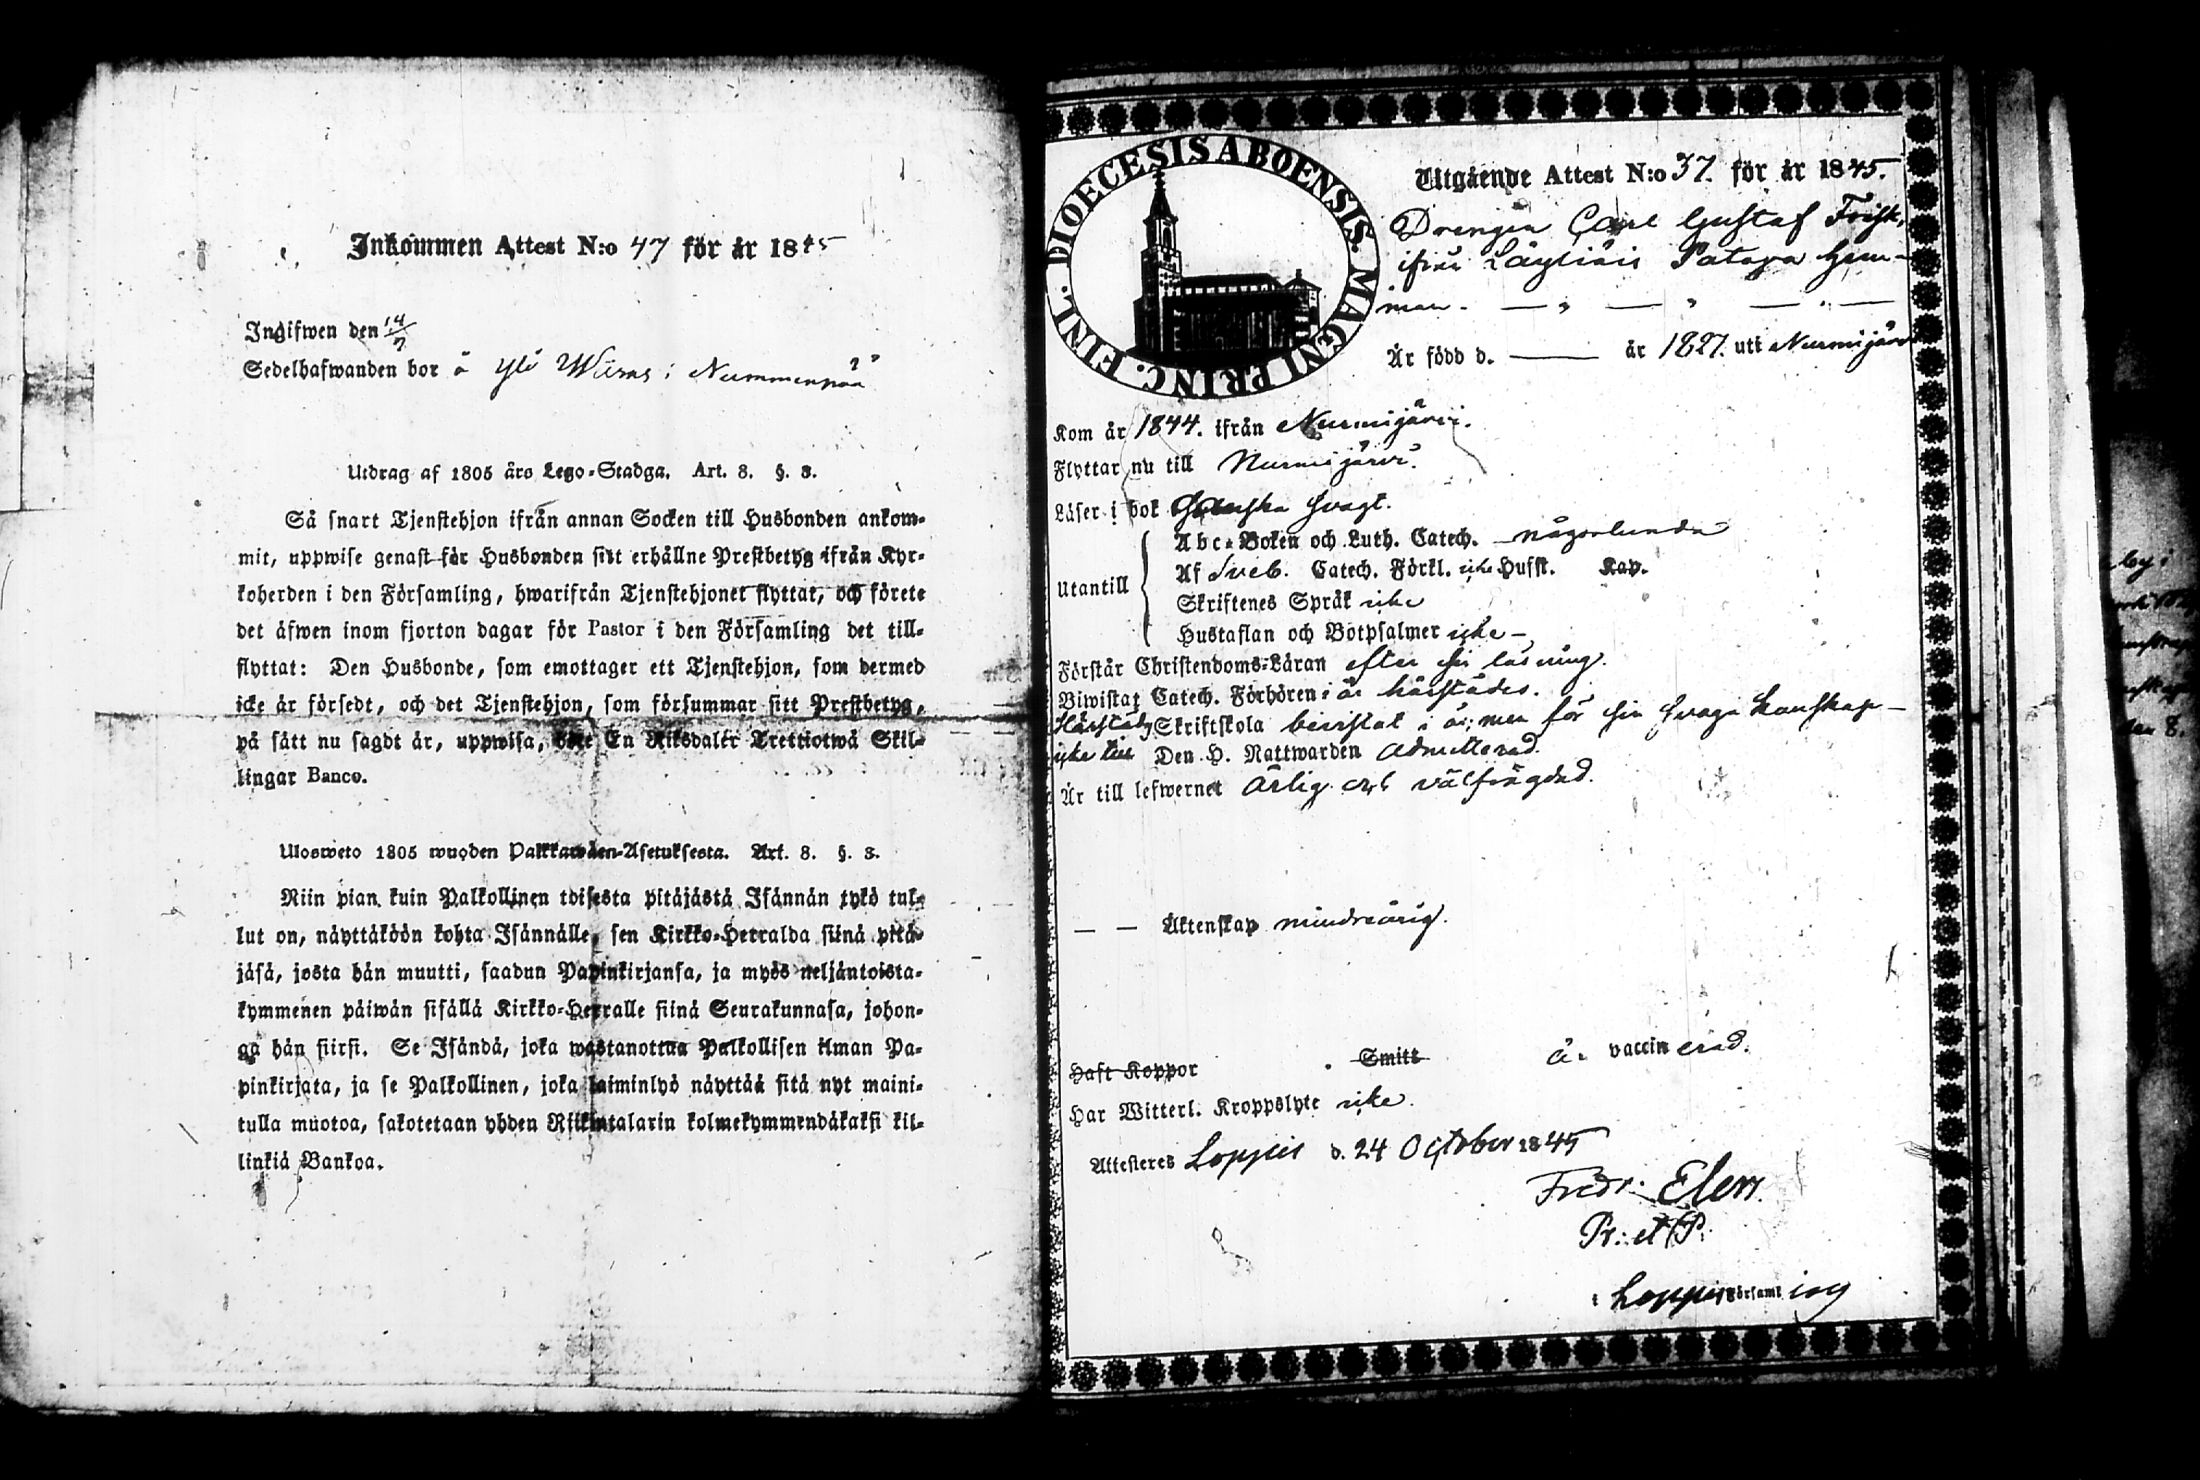 Inkommen Attest N:o 47 för år 1845
Ingifwen den 14/7
Sedelhafwanden bor å Yli Wiras i Nummenpää
Utdrag af 1805 års Lego-Stadga. Art. 8. §. 3.
Så snart Tjenstehjon ifrån annan Socken till Husbonden ankom-
mit, uppwise genast för Husbonden sitt erhållne Prestbetyg ifrån Kyr-
koherden i den Församling, hwarifrån Tjenstehjonet flyttat, och förete
det äfwen inom fjorton dagar för Pastor i den Församling det till-
flyttat: Den Husbonde, som emottager ett Tjenstehjon, som dermed
icke är försedt, och det Tjenstehjon, som försummar sitt Prestbetyg,
på sätt nu sagdt är, uppwisa, böte En Riksdaler Trettiotwå Skil-
lingar Banco.
Ulosweto 1805 wuoden Palkkawäen-Asetuksesta. Art. 8. §. 3.
Niin pian kuin Palkollinen toisesta pitäjästä Isännän tykö tul-
lut on, näyttäköön kohta Isännälle, sen Kirkko-Herralda siinä pitä-
jäsä, josta hän muutti, saadun Papinkirjansa, ja myös neljäntoista-
kymmenen päiwän sisällä Kirkko-Herralle siinä Seurakunnasa, johon-
ga hän siirsi. Se Isändä, joka wastanottaa Palkollisen ilman Pa-
pinkirjata, ja se Palkollinen, joka laiminlyö näyttää sitä nyt maini-
tulla muotoa, sakotetaan yhden Riikintalarin kolmekymmendäkaksi kil-
linkiä Bankoa.
DIOECESIS ABOENSIS. MAGNI PRINC. FINL.
Utgående Attest N:o 37. för år 1845.
Drengen Carl Gustaf Frisk,
ifrån Läyliäis Patapa hem-
man.
Är född d. — år 1827. uti Nurmijärvi
Kom år 1844. ifrån Nurmijärvi.
Flyttar nu till Nurmijärvi.
Läser i bok Ganska svagt.
Utantill
Abc-Boken och Luth. Catech. någorlunda
Af Sveb. Catech. Förkl. icke Hufst. Kap.
Skriftenes Språk icke
Hustaflan och Botpsalmer icke –
Förstår Christendoms-Läran efter sin läsning.
Biwistat Catech. Förhören i år härstädes.
Härstädes Skriftskola bevistat i år; men för sin svaga kunskap –
icke till Den H. Nattwarden admitterad.
Är till lefwernet ärlig och välfrägdad.
— — Äktenskap minderårig.
Haft Koppor Smitt är vaccinerad.
Har Witterl. Kroppslyte icke.
Attesteras Loppis d. 24 October 1845
Fredr. Elers.
Pr. et P.
i Loppis Församling